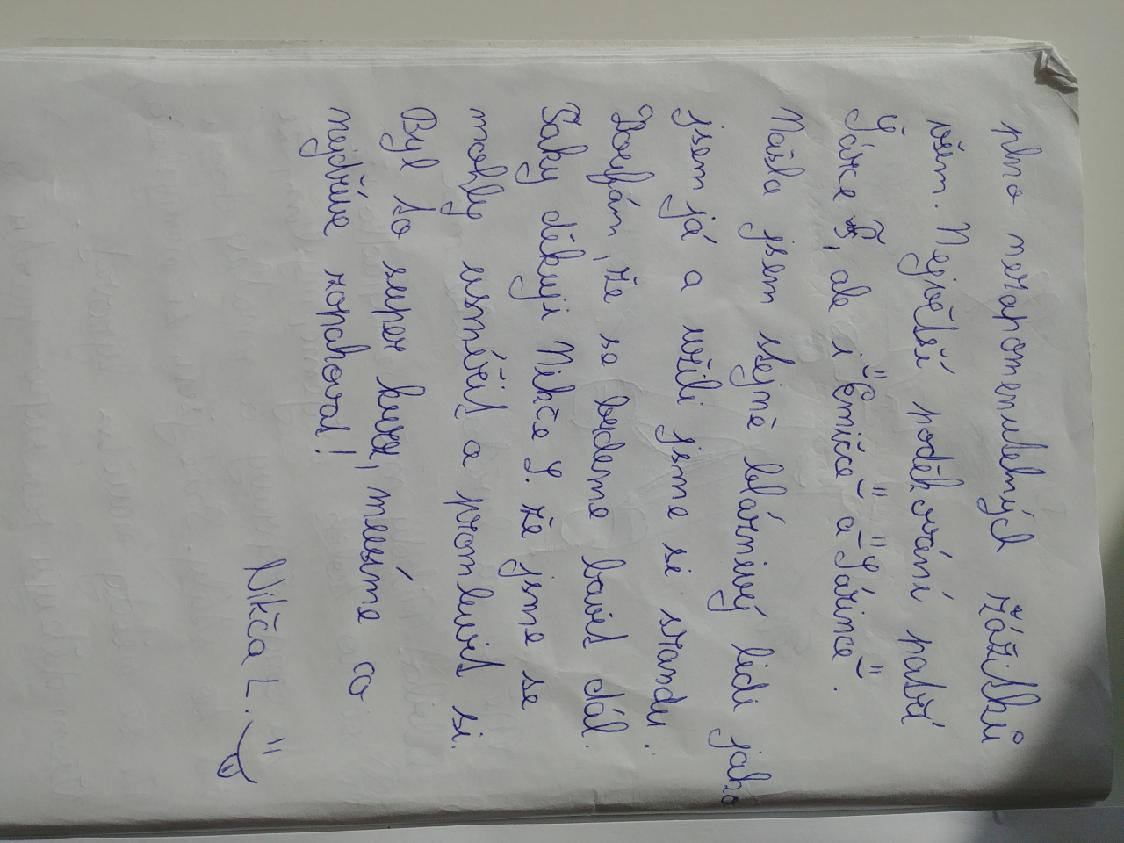 plno nezapomenutelných zážitků
všem. Největší poděkování patří
Yárce Š, ale i "Emičce" a "Yárince".
Našla jsem stejně bláznivý lidi jako
jsem já a užili jsme si srandu.
Doufám, že se budeme bavit dál.
Taky děkuji Nikče Y. že jsme se
mohly usmířit a promluvit si.
Byl to super kurz, musíme co
nejdříve zopakovat!
Nikča L.